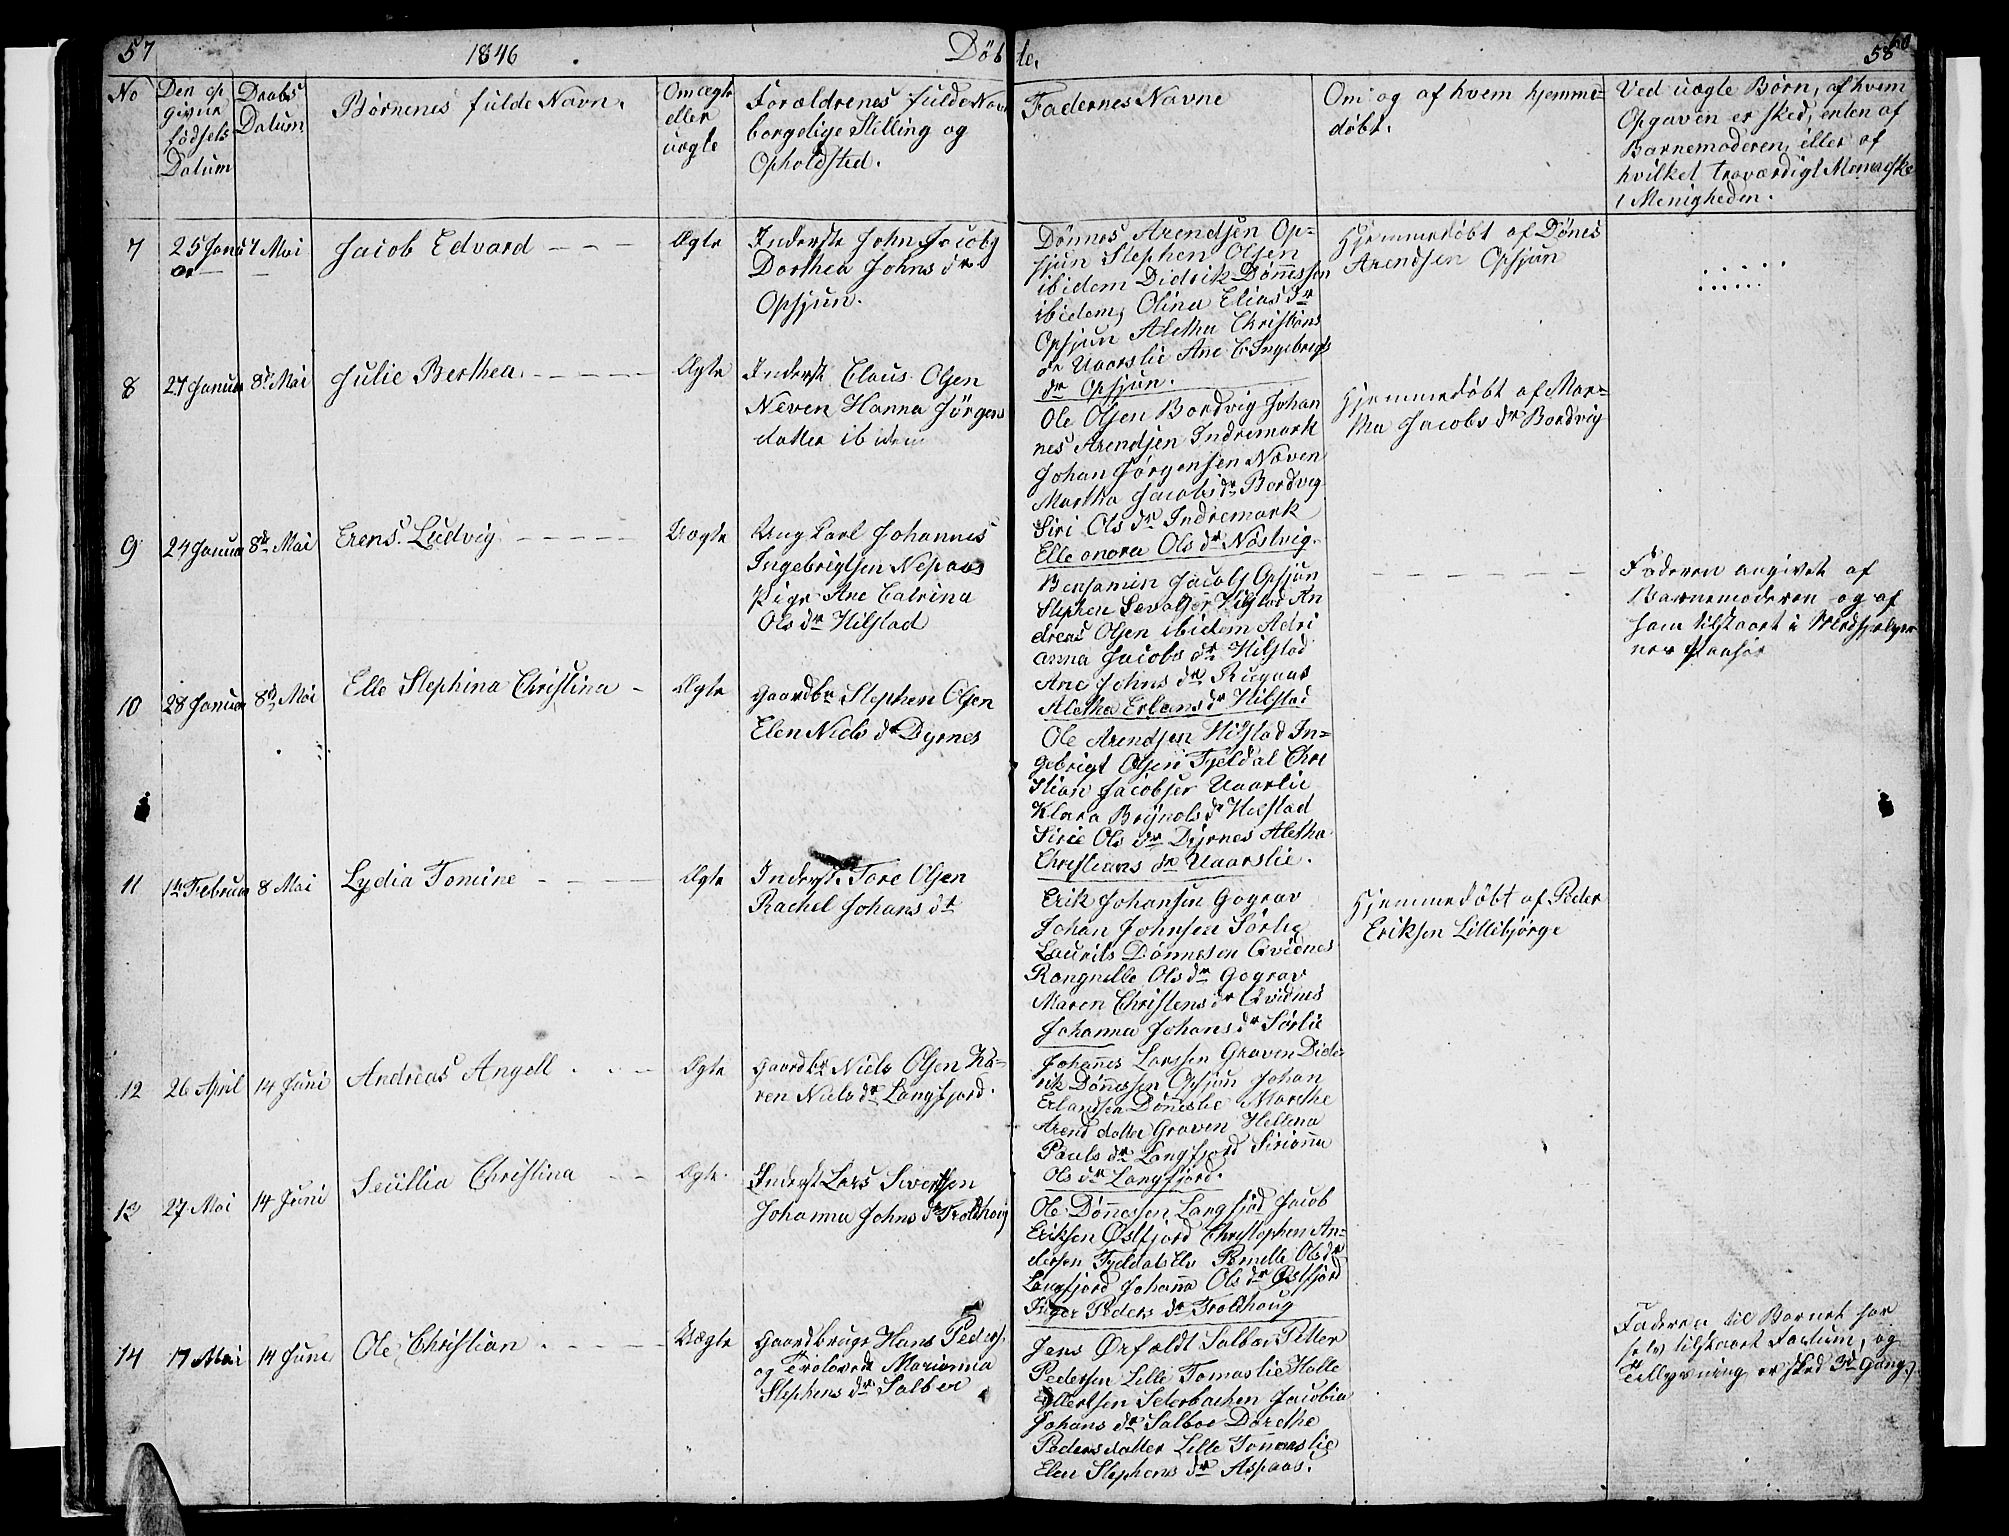 57 1846 Døbte. 58
No
Den op
givne
Fødsels
Datum
Daabs
Datum
Børnenes fulde Navn.
Om ægte
eller
uægte
Forældrenes fulde Navn
borgelige Stilling og
Opholdsted.
Faderes Navne
Om og af hvem hjemme=
døbt.
Ved uægte Børn, af hvem
Opgaven er sked, enten af
Barnemoderen, eller af
hvilket troværdigt Menneske
i Menigheden.
7
25 Janu
ar
7 Mai
Jacob Edvard
Ægte
Inderste John Jacobs
Dorthea Johns dr
Opsjun.
Dønnes Arendsen Op=
sjun Stephen Olsen
ibidem Didrik Dønnessen
ibidem, Olina Elias dr
Opsjun Aletha Christians
dr Uaarslie Ane C Ingebrigts
dr Opsjun.
Hjemmedøbt af Dønes
Arendsen Opsjun
8
27 Januar
8de Mai
Julie Berthea
Ægte
Inderst Claus Olsen
Næven Hanna Jørgens
datter ibidem
Ole Olsen Bordvig Johan
nes Arendsen Indremark
Johan Jørgensen Næven
Martha Jacobs dr Bordvig
Siri Ols dr Indremark
Elleonora Ols dr Nøstvig.
Hjemmedøbt af Mar=
tha Jacobs dr Bordvig
9
24 Januar
8de Mai
Erens Ludvig
Uægte
Ung Karl Johannes
Ingebrigtsen Nesaas
Pige Ane Catrina
Ols dr Hilstad
Benjamin Jacobs Opsjun
Stephen Hilstad An
dreas Olsen ibidem Adri
anna Jacobs dr Hilstad
Ane Johns dr
Aletha Erlans dr Hilstad
Faderen angivet af
Barnemoderen og af
ham tilstaaet i
10
28 Januar
8de Mai
Elle Stephina Christina
Ægte
Gaardbr Stephen Olsen
Elen Niels dr Dyrnes
Ole Arendsen Hilstad In=
gebrigt Olsen Fjeldal Chri
stian Jacobsen Uaarlie
Klara Brynols dr Hilstad
Sirie Ols dr Dyrnes Aletha
Christians dr Uaarslie.
11
14 Februar
8 Mai
Lydia Tomine
Ægte
Inderst Tore Olsen
Rachel Johans dr
Erik Johansen Gograv
Johan Johnsen Sørlie
Laurits Dønnesen Qvidnes
Rangnille Ols dr Gograv
Maren Christens dr Qvidnes
Johanna Johans dr Sørlie
Hjemmedøbt af Peder
Eriksen Lillebjørge
12
26 April
14 Juni
Andreas Angell
Ægte
Gaardbr Niels Olsen Ka=
ren Niels dr Langfjord.
Johannes Larssen Graven Dide
rik Dønnessen Opsjun Johan
Erlandsen Døneslie Marthe
Arend datter Graven Hellena
Pauls dr Langfjord Sirianna
Ols dr Langfjord.
13
27 Mai
14 Juni
Christina
Ægte
Inderst Lars Sivertsen
Johanna Johns dr Troldhoug
Ole Dønnessen Langfjord Jacob
Eriksen Østfjord Christophen An=
dersen Pernelle Ols dr
Langfjord Johanna Ols dr Østfjord
Inger Peders dr Troldhoug
14
17 Mai
14 Juni
Ole Christian
Uægte
Gaardbruger Hans Peders.
og Trolovede Marianna
Stephens dr Salboe
Jens Ørfoldt Salboe Petter
Pedersen Lille Tomaslie Halle
Ellertsen Seterbachen Jacobia
Johans dr Salboe Dorethe
Pedersdatter Lille Tommeslie
Elen Stephens dr Aspaas.
Faderen til Barnet har
selv tilstaaet Factum, og
Tillysning er sked 3de Gang.